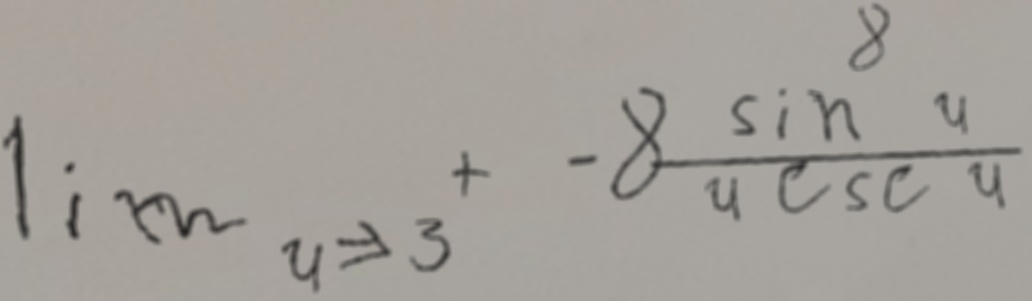 lim u→3⁺ -8 \frac{sin⁸ u}{u csc u}